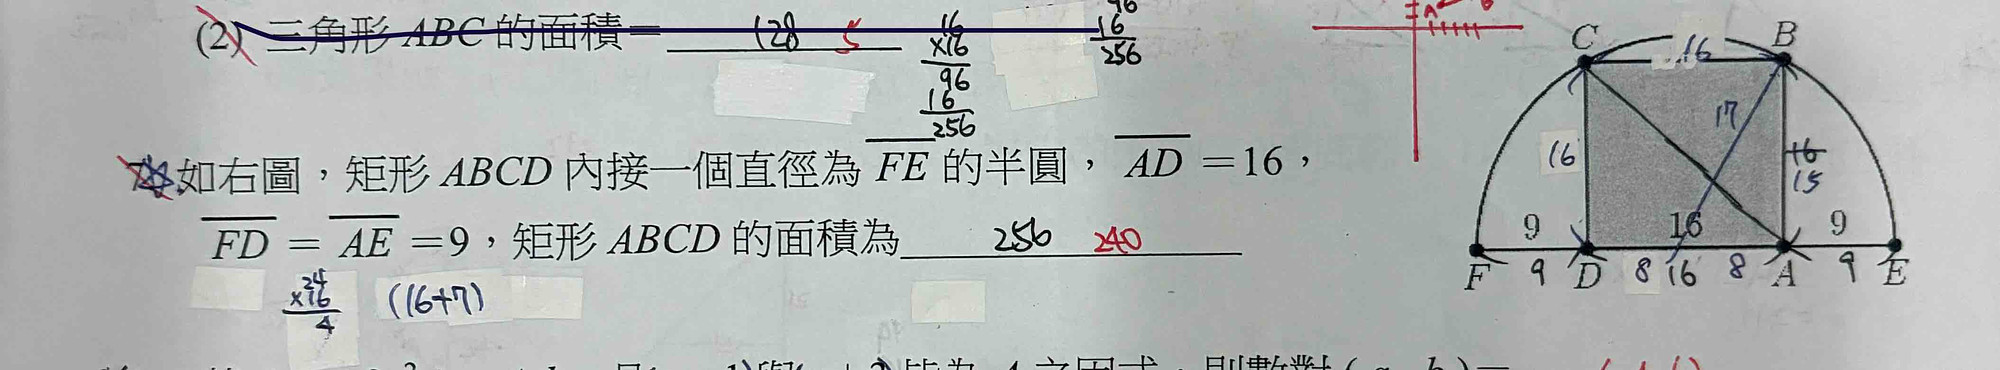 (2) 三角形 ABC 的面積= 128 5
16
×16
96
16
256
96
16
256
A
如右圖，矩形 ABCD 內接一個直徑為 FE 的半圓，AD =16，
FD = AE =9，矩形 ABCD 的面積為 256 240
24
×16
4
(16+7)
C 16 B
17
16
16
15
9 16 9
F 9 D 8 16 8 A 9 E